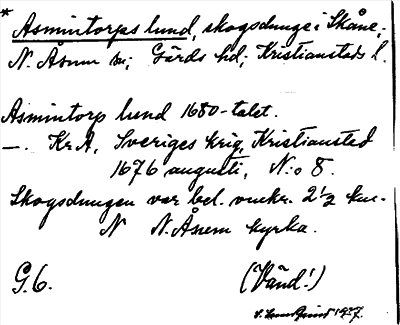 * Asmintorps lund, skogsdunge i Skåne;
N. Åsum sn; Gärds hd; Kristianstads l.
Asmintorp lund 1680-talet.
—. Kr.A, Sveriges krig, Kristianstad
1676 augusti, N:o 8.
Skogsdungen var bel. omkr. 2 1/2 km.
N N. Åsum kyrka.
G.6. (Vänd!)
1927.